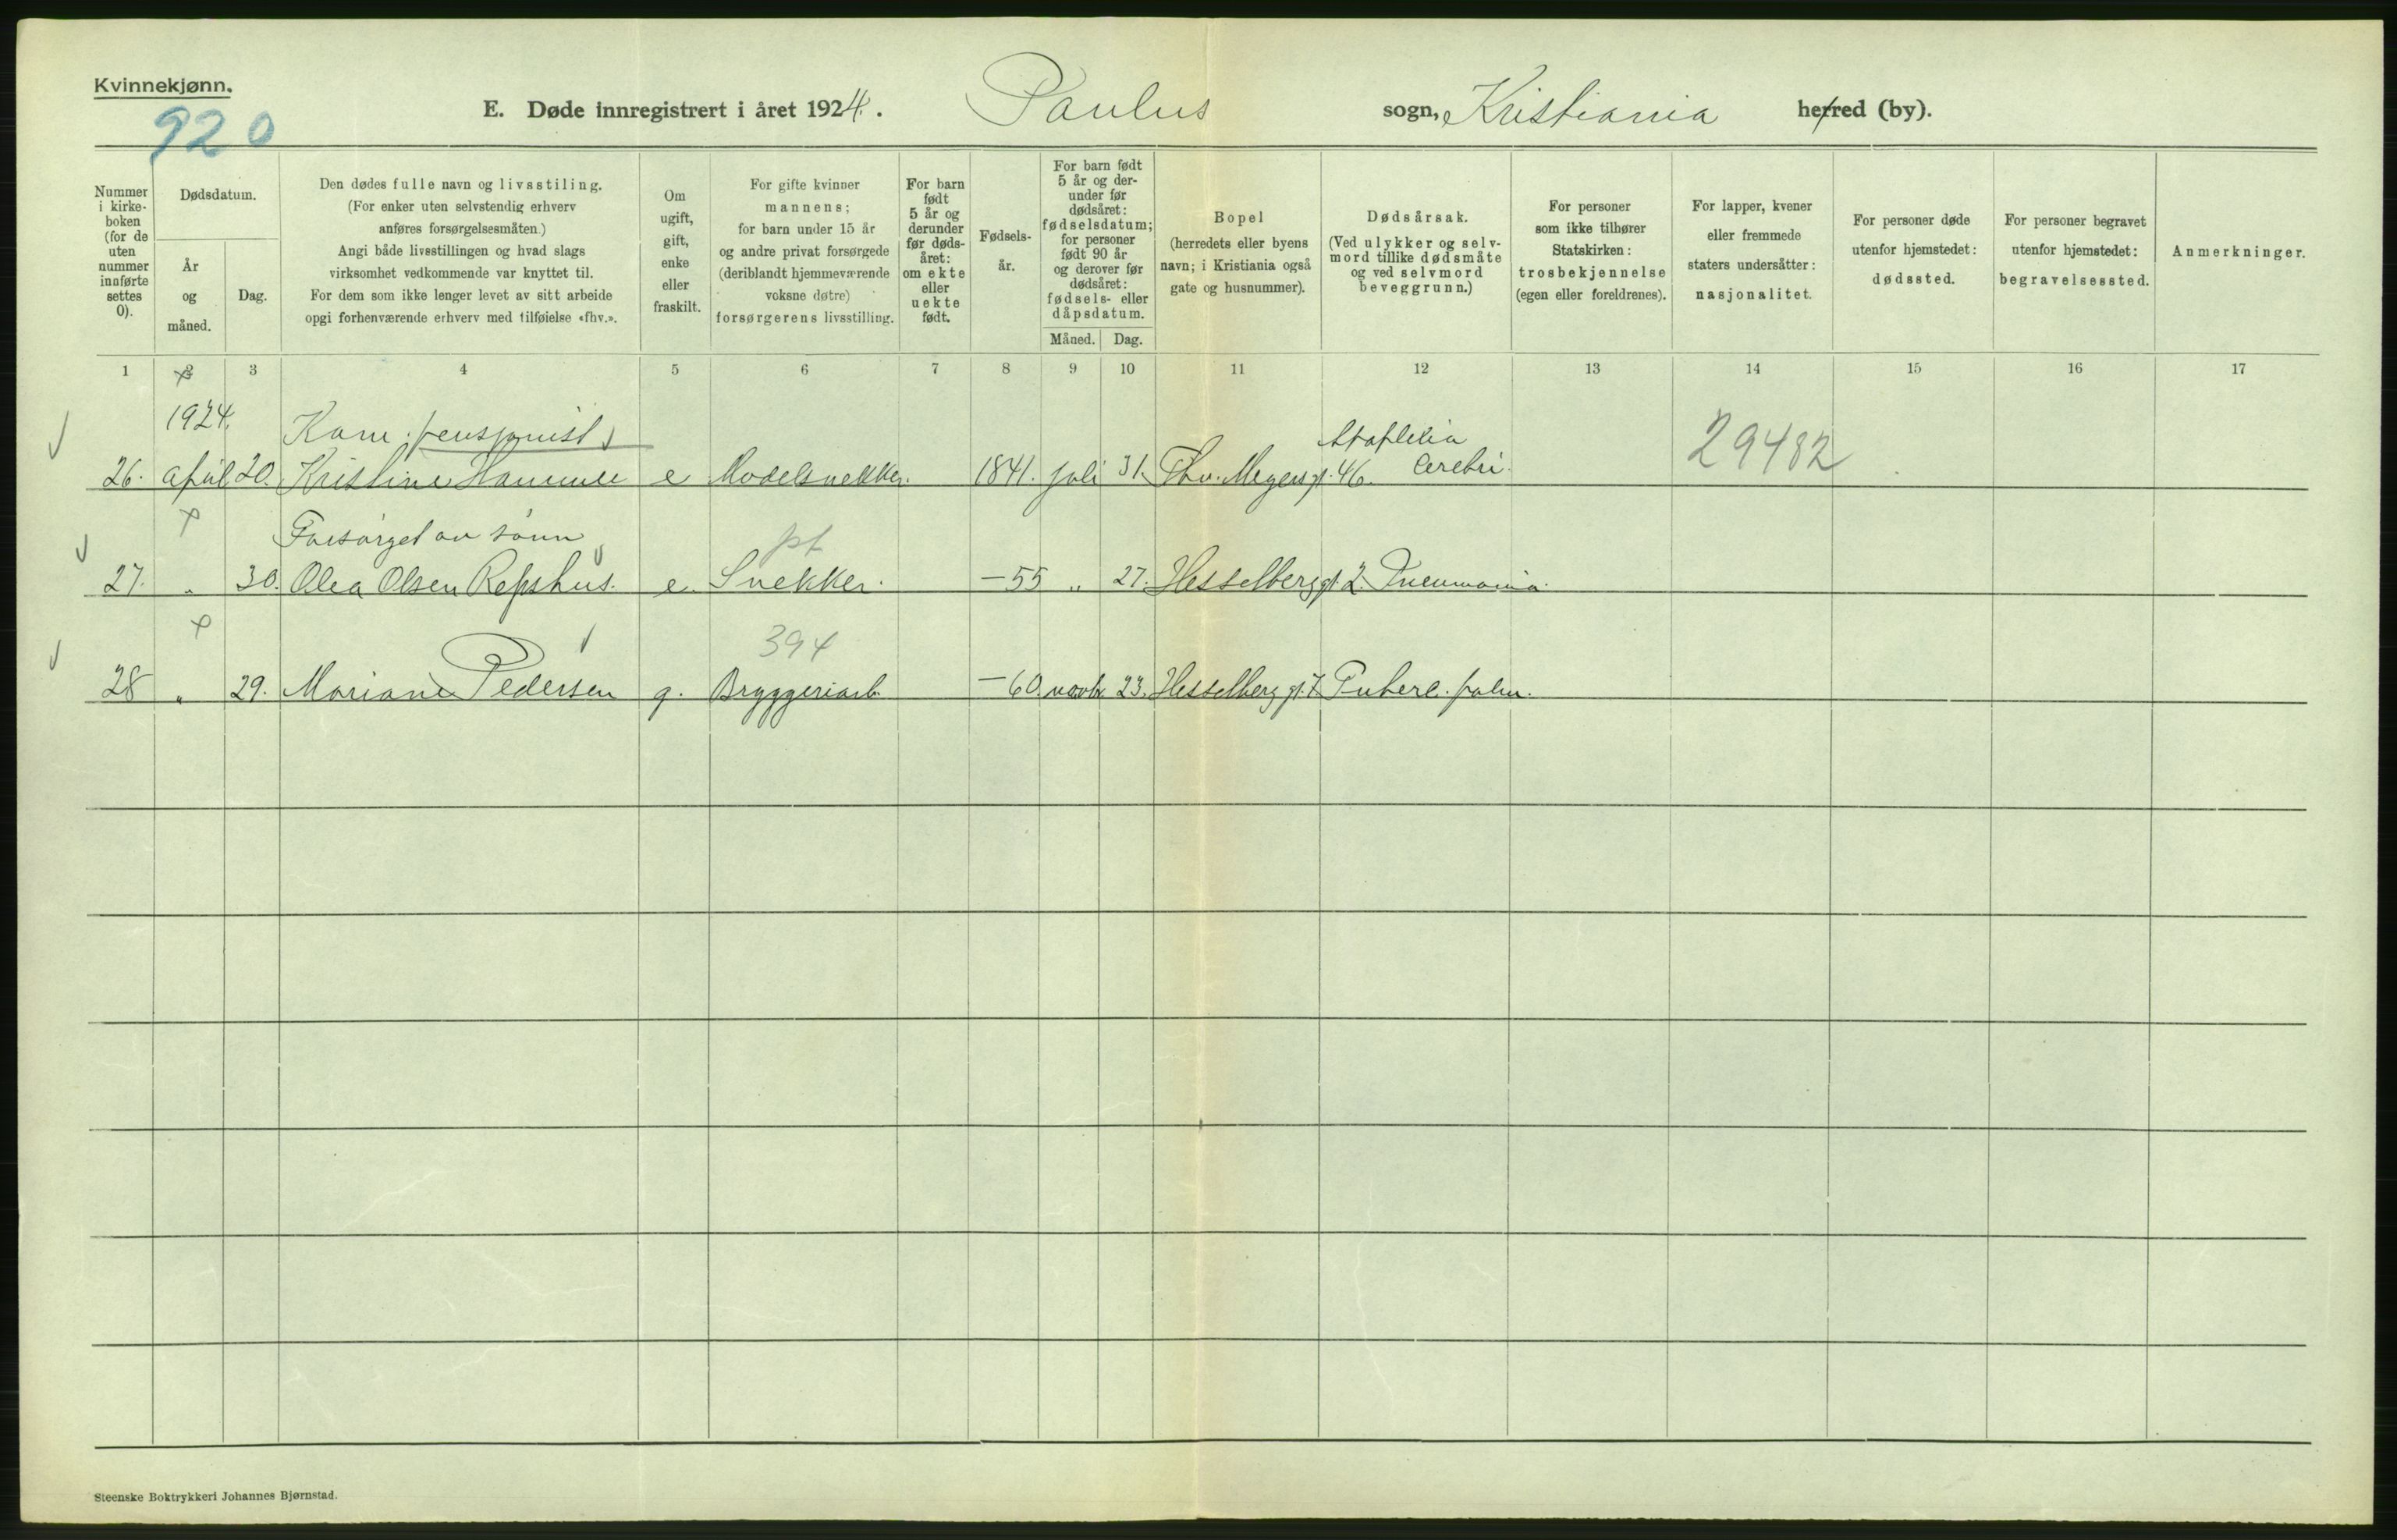 Kvinnekjønn.
920
E. Døde innregistrert i året 1924. Paulus sogn, Kristiania herred (by).
Nummer i kirkeboken (for de uten nummer innførte settes 0).
Dødsdatum.
År og måned.
Dag.
Den dødes fulle navn og livsstiling.
(For enker uten selvstendig erhverv
anføres forsørgelsesmåten.)
Angi både livsstillingen og hvad slags
virksomhet vedkommende var knyttet til.
For dem som ikke lenger levet av sitt arbeide
opgi forhenværende erhverv med tilføielse «fhv.».
Om
ugift,
gift,
enke
eller
fraskilt.
For gifte kvinner
mannens;
for barn under 15 år
og andre privat forsørgede
(deriblandt hjemmeværende
voksne døtre)
forsørgerens livsstilling.
For barn
født
5 år og
derunder
før døds-
året:
om ekte
eller
uekte
født.
Fødsels-
år.
For barn født
5 år og der-
under før
dødsåret:
fødselsdatum;
for personer
født 90 år
og derover før
dødsåret:
fødsels- eller
dåpsdatum.
Måned. Dag.
Bopel
(herredets eller byens
navn; i Kristiania også
gate og husnummer).
Dødsårsak.
(Ved ulykker og selv-
mord tillike dødsmåte
og ved selvmord
beveggrunn.)
For personer
som ikke tilhører
Statskirken:
trosbekjennelse
(egen eller foreldrenes).
For lapper, kvener
eller fremmede
staters undersåtter:
nasjonalitet.
For personer døde
utenfor hjemstedet:
dødssted.
For personer begravet
utenfor hjemstedet:
begravelsessted.
Anmerkninger.
1 2 3 4 5 6 7 8 9 10 11 12 13 14 15 16 17
1924.
pensjonist
29482
26. april 20. Kristine e Modelsnekker. 1841. juli 31. Thv. Meyers gt. 46. Cerebri.
Forsørget av sønn
27. „ 30. Olea Olsen Repshus. e. Snekker. – 55 „ 27. Hesselberg gt. 2. Pneumonia.
394
28 „ 29. Mariane Pedersen g. Bryggeriarb. – 60. novbr. 23. Hesselberg gt. 7 Tuberc. pulm.
Steenske Boktrykkeri Johannes Bjørnstad.